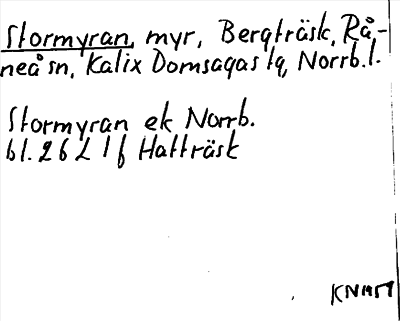 Stormyran, myr, Bergträsk, Rå-
neå sn, Kalix Domsagas tg, Norrb.l.
Stormyran ek Norrb.
bl. 26 L 1 f Hatträsk